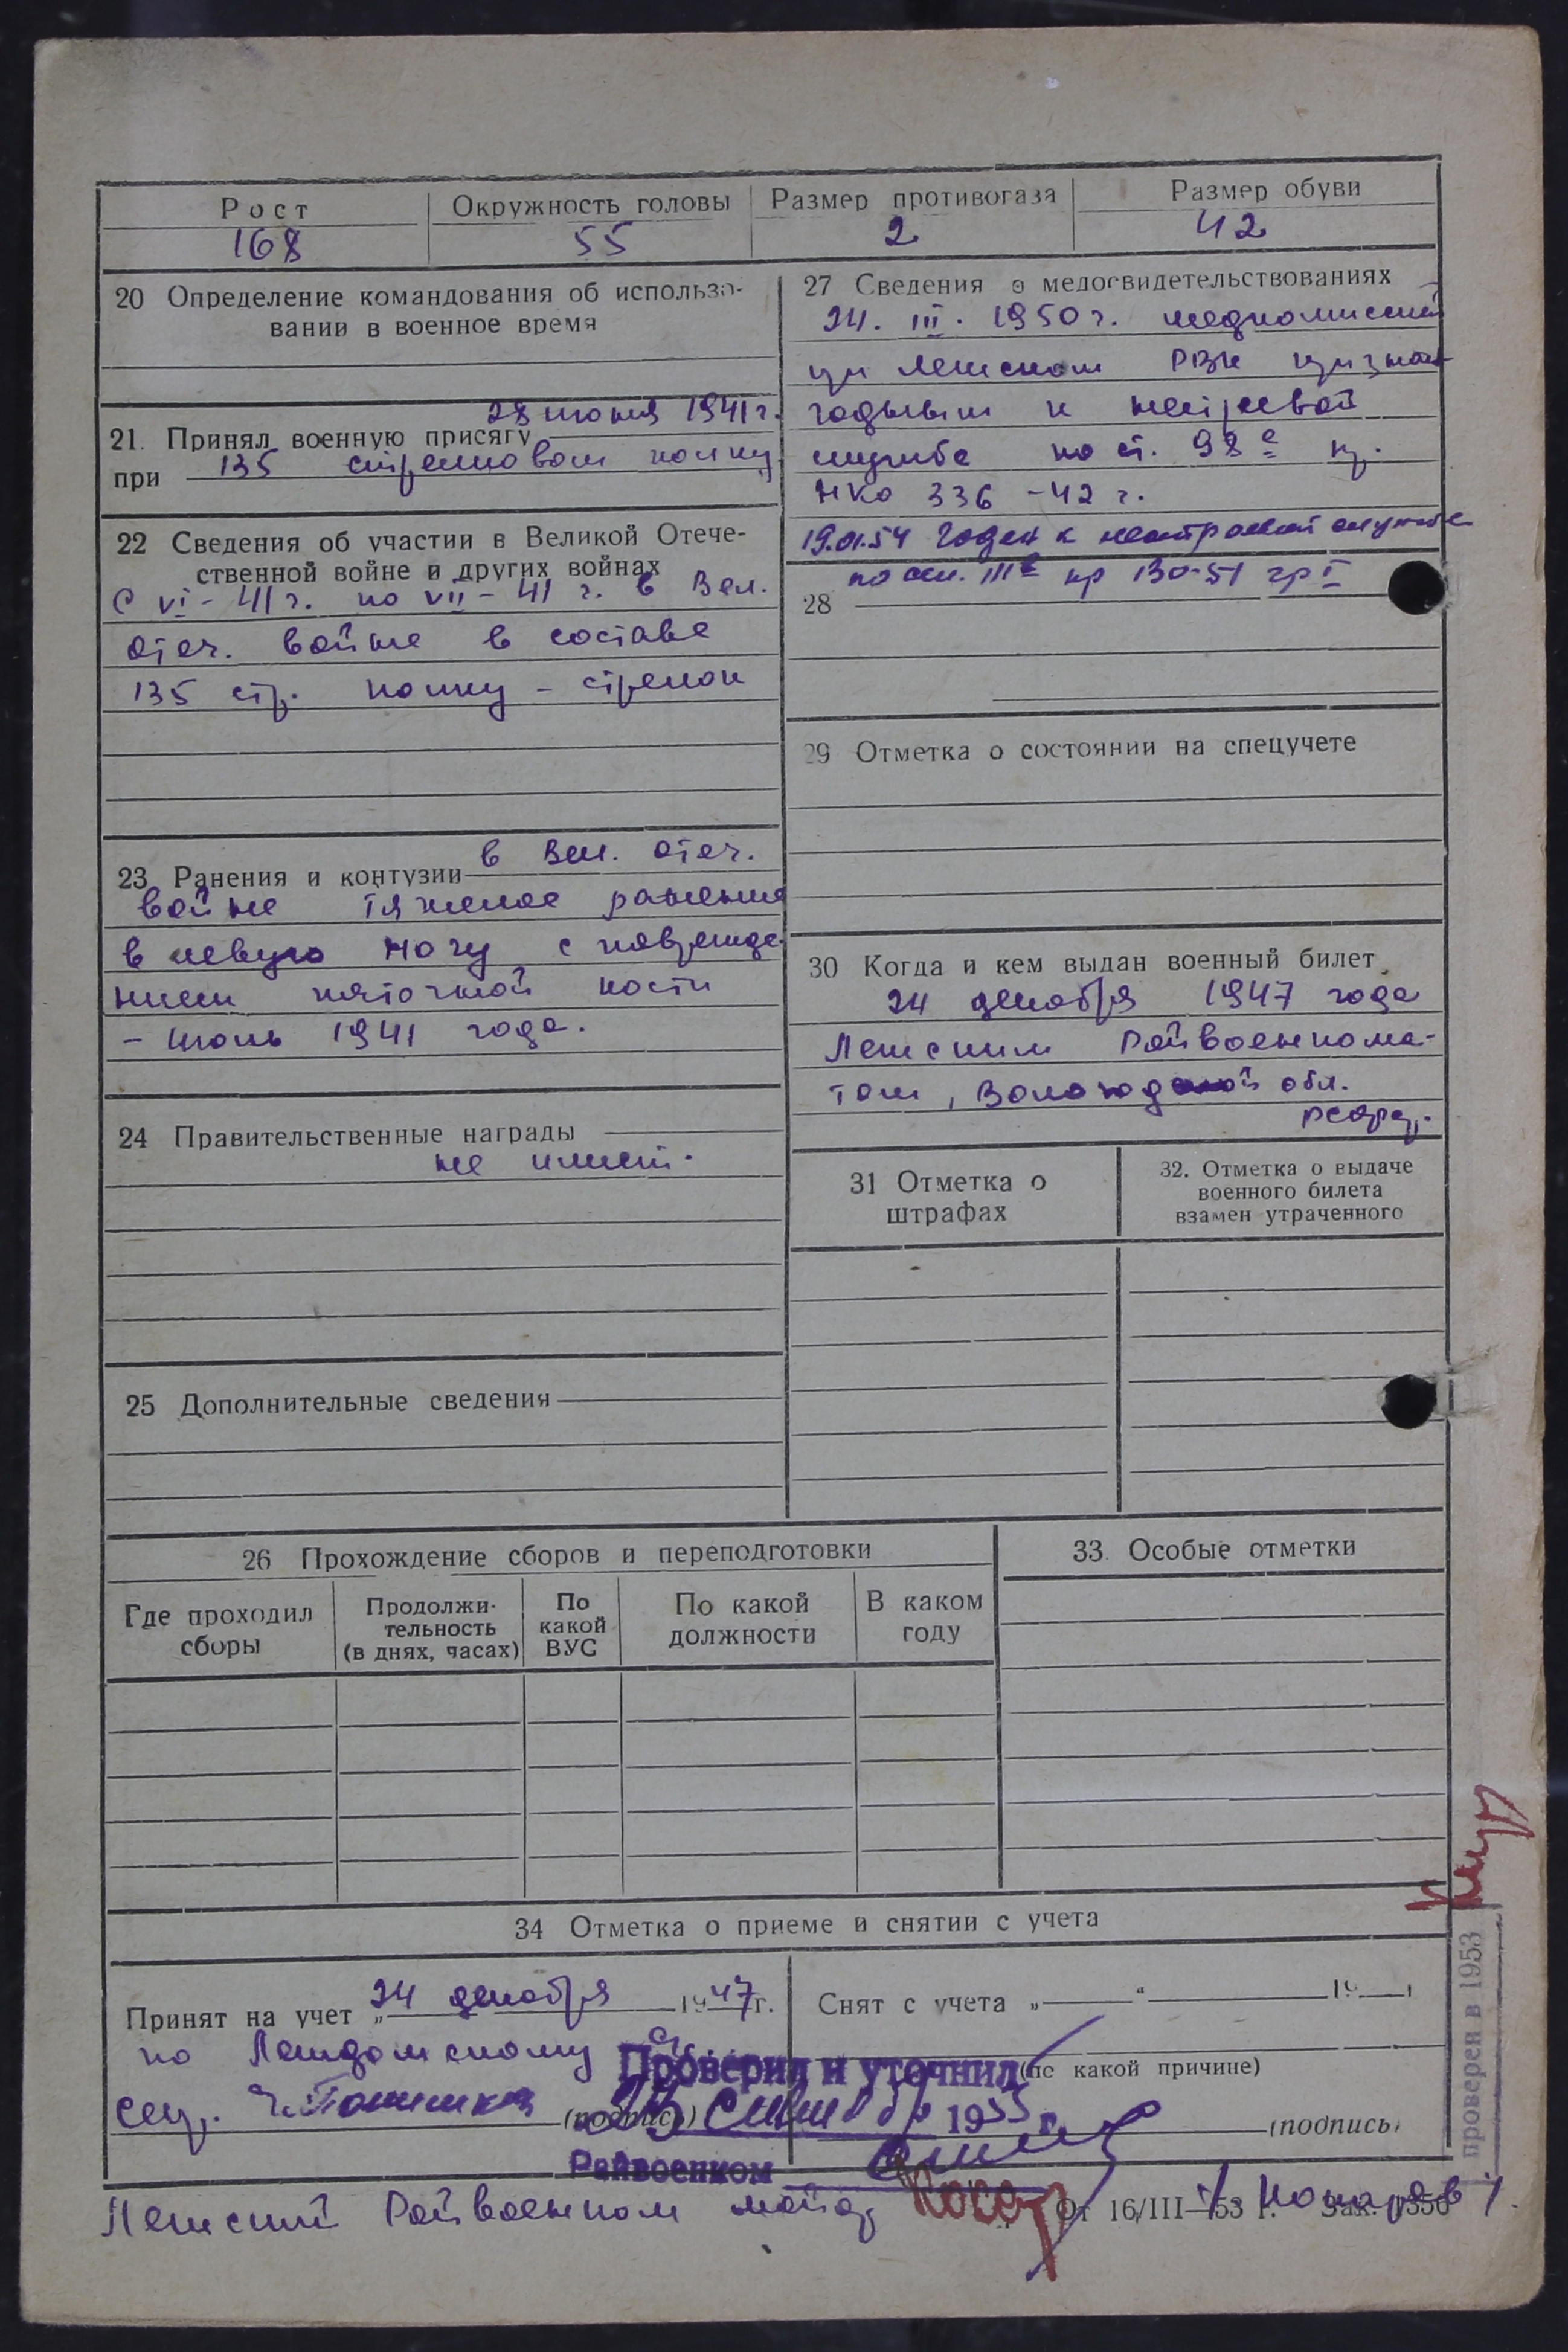 Рост Окружность головы Размер противогаза Размер обуви
168 55 2 42
20 Определение командования об использо-
вании в военное время
28 июня 1941 г.
21. Принял военную присягу
при 135 стрелковом полку
22 Сведения об участии в Великой Отече-
ственной войне и других войнах
С VI - 41 г. по VII - 41 г. в Вел.
Отеч. войне в составе
135 стр. полку - стрелок
23 Ранения и контузии в Вел. Отеч.
войне тяжелое ранение
в левую ногу с поврежде-
нием пяточной кости
- июль 1941 года.
24 Правительственные награды
не имеет.
25 Дополнительные сведения
27 Сведения о медосвидетельствованиях
24. III. 1950 г. медкомиссией
при Лежском РВК признан
годным к нестроевой
службе по ст. 98 е пр.
НКО 336 - 42 г.
19.01.54 Годен к нестроевой службе
по ст. III пр 130-51 гр I
28
29 Отметка о состоянии на спецучете
30 Когда и кем выдан военный билет
24 декабря 1947 года
Лежским Райвоенкома-
том, Вологодской обл.
31 Отметка о
штрафах
32. Отметка о выдаче
военного билета
взамен утраченного
26 Прохождение сборов и переподготовки
Где проходил
сборы
Продолжи-
тельность
(в днях, часах)
По
какой
ВУС
По какой
должности
В каком
году
33. Особые отметки
34 Отметка о приеме и снятии с учета
Принят на учет „ 24 декабря 1947 г.
по
(подпись)
Снят с учета „ “ 19 г
(по какой причине)
(подпись)
Проверил и уточнил
1955 г.
Райвоенком
Лежский Райвоенком майор
/ Комаров /.
От 16/III—53 г. Зак. 1350
проверен в 1953